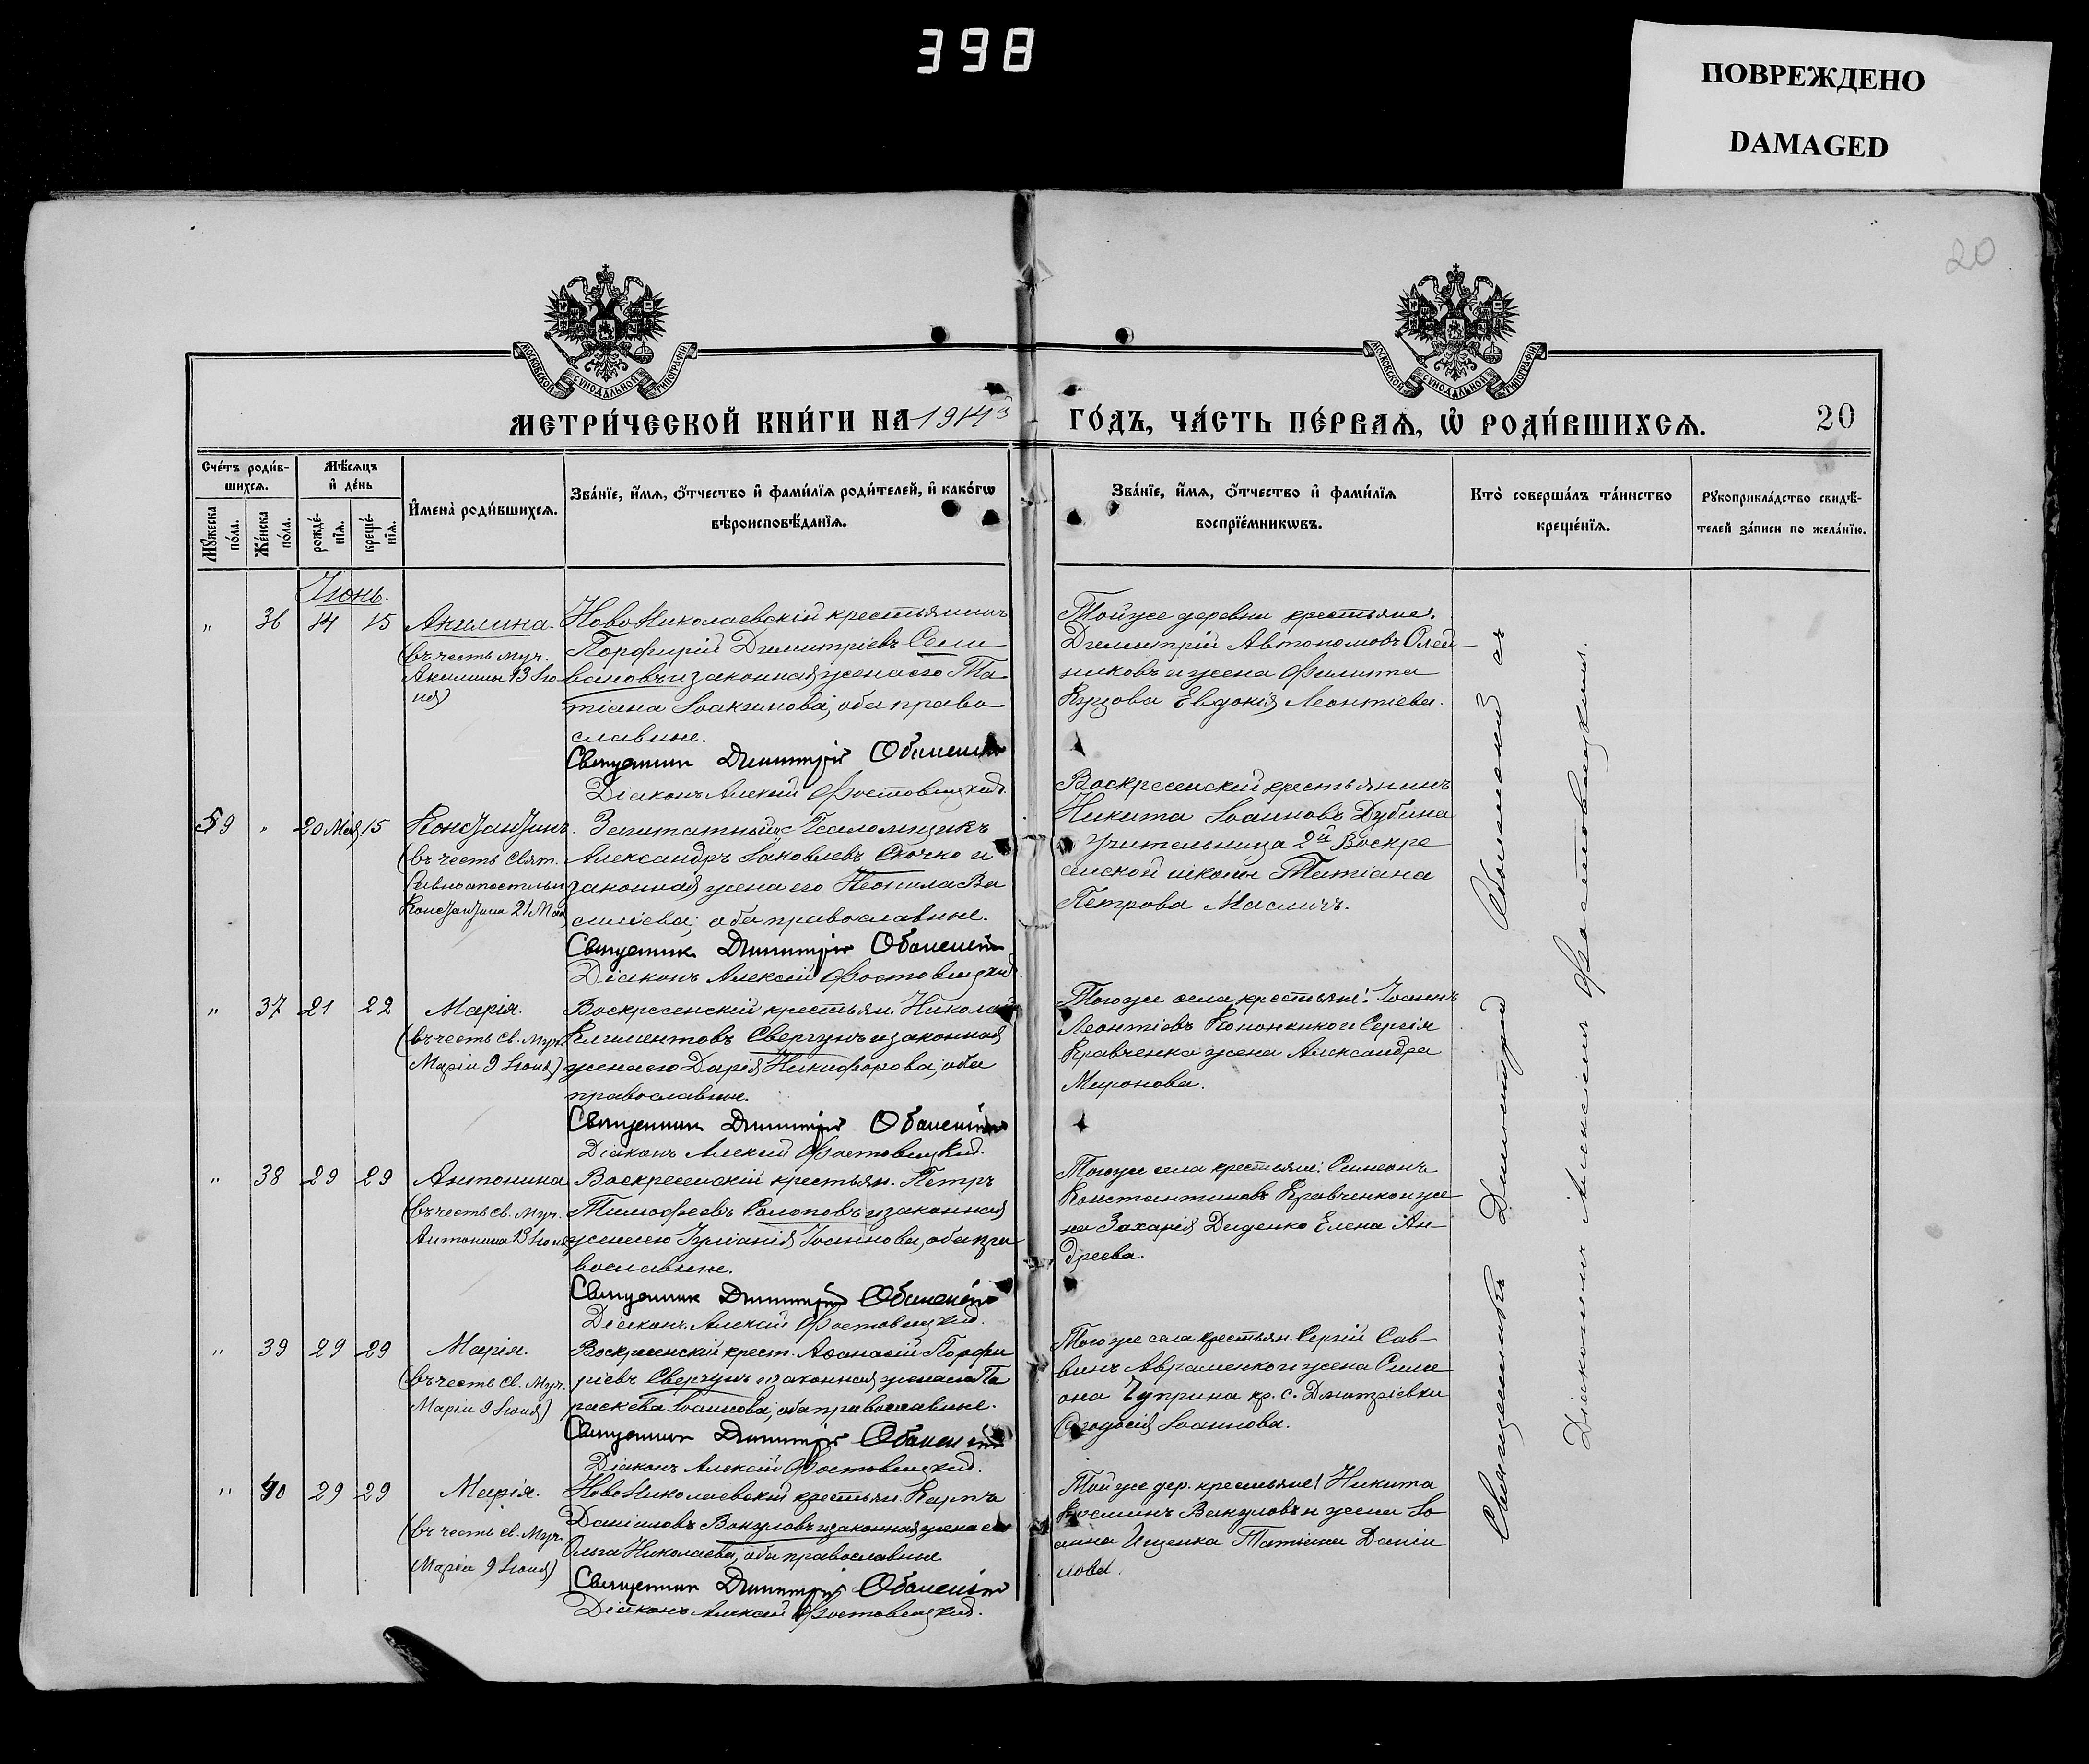 398
ПОВРЕЖДЕНО
DAMAGED
20
МОСКОВСКОЙ СѴНОДАЛЬНОЙ ТИПОГРАФІИ
МОСКОВСКОЙ СѴНОДАЛЬНОЙ ТИПОГРАФІИ
МЕТРИ́ЧЕСКОЙ КНИ́ГИ НА 1914й ГО́ДЪ, ЧА́СТЬ ПЕ́РВАѦ, Ѡ҆ РОДИ́ВШИХСѦ. 20
Сче́тъ роди́в-
шихсѧ.
Мѣ́сѧцъ
и҆ де́нь
Мꙋ́жеска
по́ла.
Же́нска
по́ла.
рожде́-
нїѧ.
креще́-
нїѧ.
И҆мена̀ роди́вшихсѧ.
Зва́нїе, и҆́мѧ, ѻ҆́тчество и҆ фами́лїѧ роди́телей, и҆ како́гѡ
вѣроисповѣ́данїѧ.
Зва́нїе, и҆́мѧ, ѻ҆́тчество и҆ фами́лїѧ
воспрїе́мникѡвъ.
Кто̀ соверша́лъ та́инство
креще́нїѧ.
Рꙋкоприкла́дство свидѣ́-
телей за́писи по жела́нїю.
Іюнь.
" 36 14 15 Акилина.
(въ честь муч.
Акилины 13 Iю
ня)
НовоНиколаевскій крестьянинъ
Порфирій Димитріевъ Сели
вановъ и законная жена его Та
тіана Іоакимова, оба право
славные.
Священник Димитрій
Діаконъ Алексій
Тойже деревни крестьяне:
Димитрій Автономовъ Олей-
никовъ и жена Филиппа
Евдокія Леонтіева.
39 " 20 Мая 15 Константинъ.
(въ честь Свят.
Равноапостольн
Константина 21 Мая)
Заштатный Псаломщикъ
Александръ Іаковлевъ Скочко и
законная жена его Неонила Ва
силіева; оба православные.
Священник Димитрій
Діаконъ Алексій
Воскресенскій крестьянинъ
Никита Іоанновъ Дубина
учительница 2й Воскре
сенской школы Татіана
Петрова
" 37 21 22 Марія.
(въ честь св. Муч.
Маріи 9 Іюня)
Воскресенскій крестьян. Николай
Климентовъ Свергунъ и законная
жена его Дарія Никифорова, оба
православные.
Священник Димитрій
Діаконъ Алексій
Того же села крестьяне: Іоаннъ
Леонтіевъ Кононенко и Сергія
Кравченка жена Александра
Миронова.
" 38 29 29 Антонина
(въ честь св. Муч.
Антонины 13 Іюня)
Воскресенскій крестьян. Петръ
Тимофеевъ Солоповъ и законная
жена его Іуліанія Іоаннова, оба пра
вославные.
Священник Димитрій
Діаконъ Алексій
Того же села крестьяне: Симеонъ
Константиновъ Кравченко и же
на Захарія Диденко Елена Ан-
дреева.
" 39 29 29 Марія.
(въ честь Св. Муч.
Маріи 9 Іюня)
Воскресенскій крест. Аѳанасій Порфи
ріевъ Свергунъ и законная жена его Па
раскева Іоаннова, оба православные.
Священник Димитрій
Діаконъ Алексій
Того же села крестьян. Сергій Сав-
винъ Авраменко и жена Симе
она Чуприна кр. с. Дмитріевки
Ѳеодосія Іоаннова.
" 40 29 29 Марія.
(въ честь св. Муч.
Маріи 9 Іюня)
НовоНиколаевскій крестьян. Карпъ
Даніиловъ Вакуловъ и законная жена его
Ольга Николаева, оба православные
Священник Димитрій
Діаконъ Алексій
Тойже дер. крестьяне: Никита
Косминъ Вакуловъ и жена Іо
анна Ищенка Татіана Даніи
лова.
Священникъ Димитрій съ
Діакономъ Алексіемъ